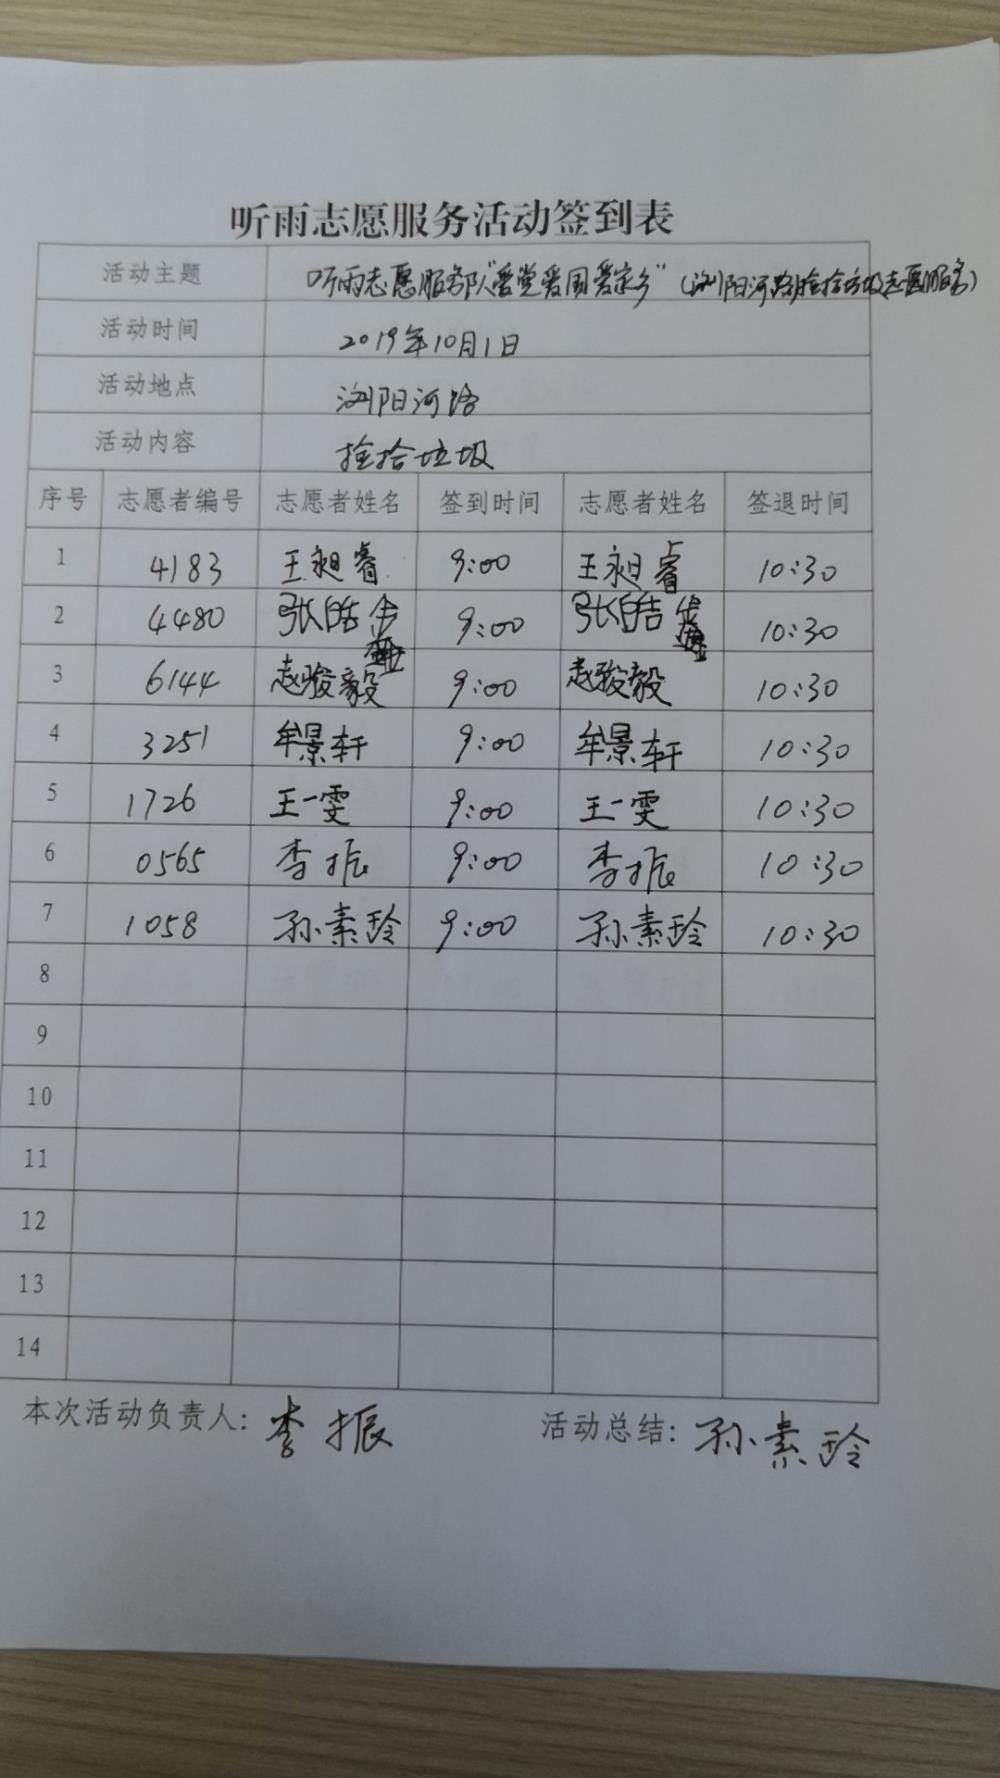 听雨志愿服务活动签到表
活动主题 听雨志愿服务队“爱党爱国爱家乡”（浏阳河路捡拾垃圾志愿服务）
活动时间 2019年10月1日
活动地点 浏阳河路
活动内容 捡拾垃圾
序号 志愿者编号 志愿者姓名 签到时间 志愿者姓名 签退时间
1 4183 王昶睿 9:00 王昶睿 10:30
2 4480 张皓 9:00 张皓 10:30
3 6144 赵骏毅 9:00 赵骏毅 10:30
4 3251 牟景轩 9:00 牟景轩 10:30
5 1726 王一雯 9:00 王一雯 10:30
6 0565 李振 9:00 李振 10:30
7 1058 孙素玲 9:00 孙素玲 10:30
8
9
10
11
12
13
14
本次活动负责人：李振 活动总结：孙素玲